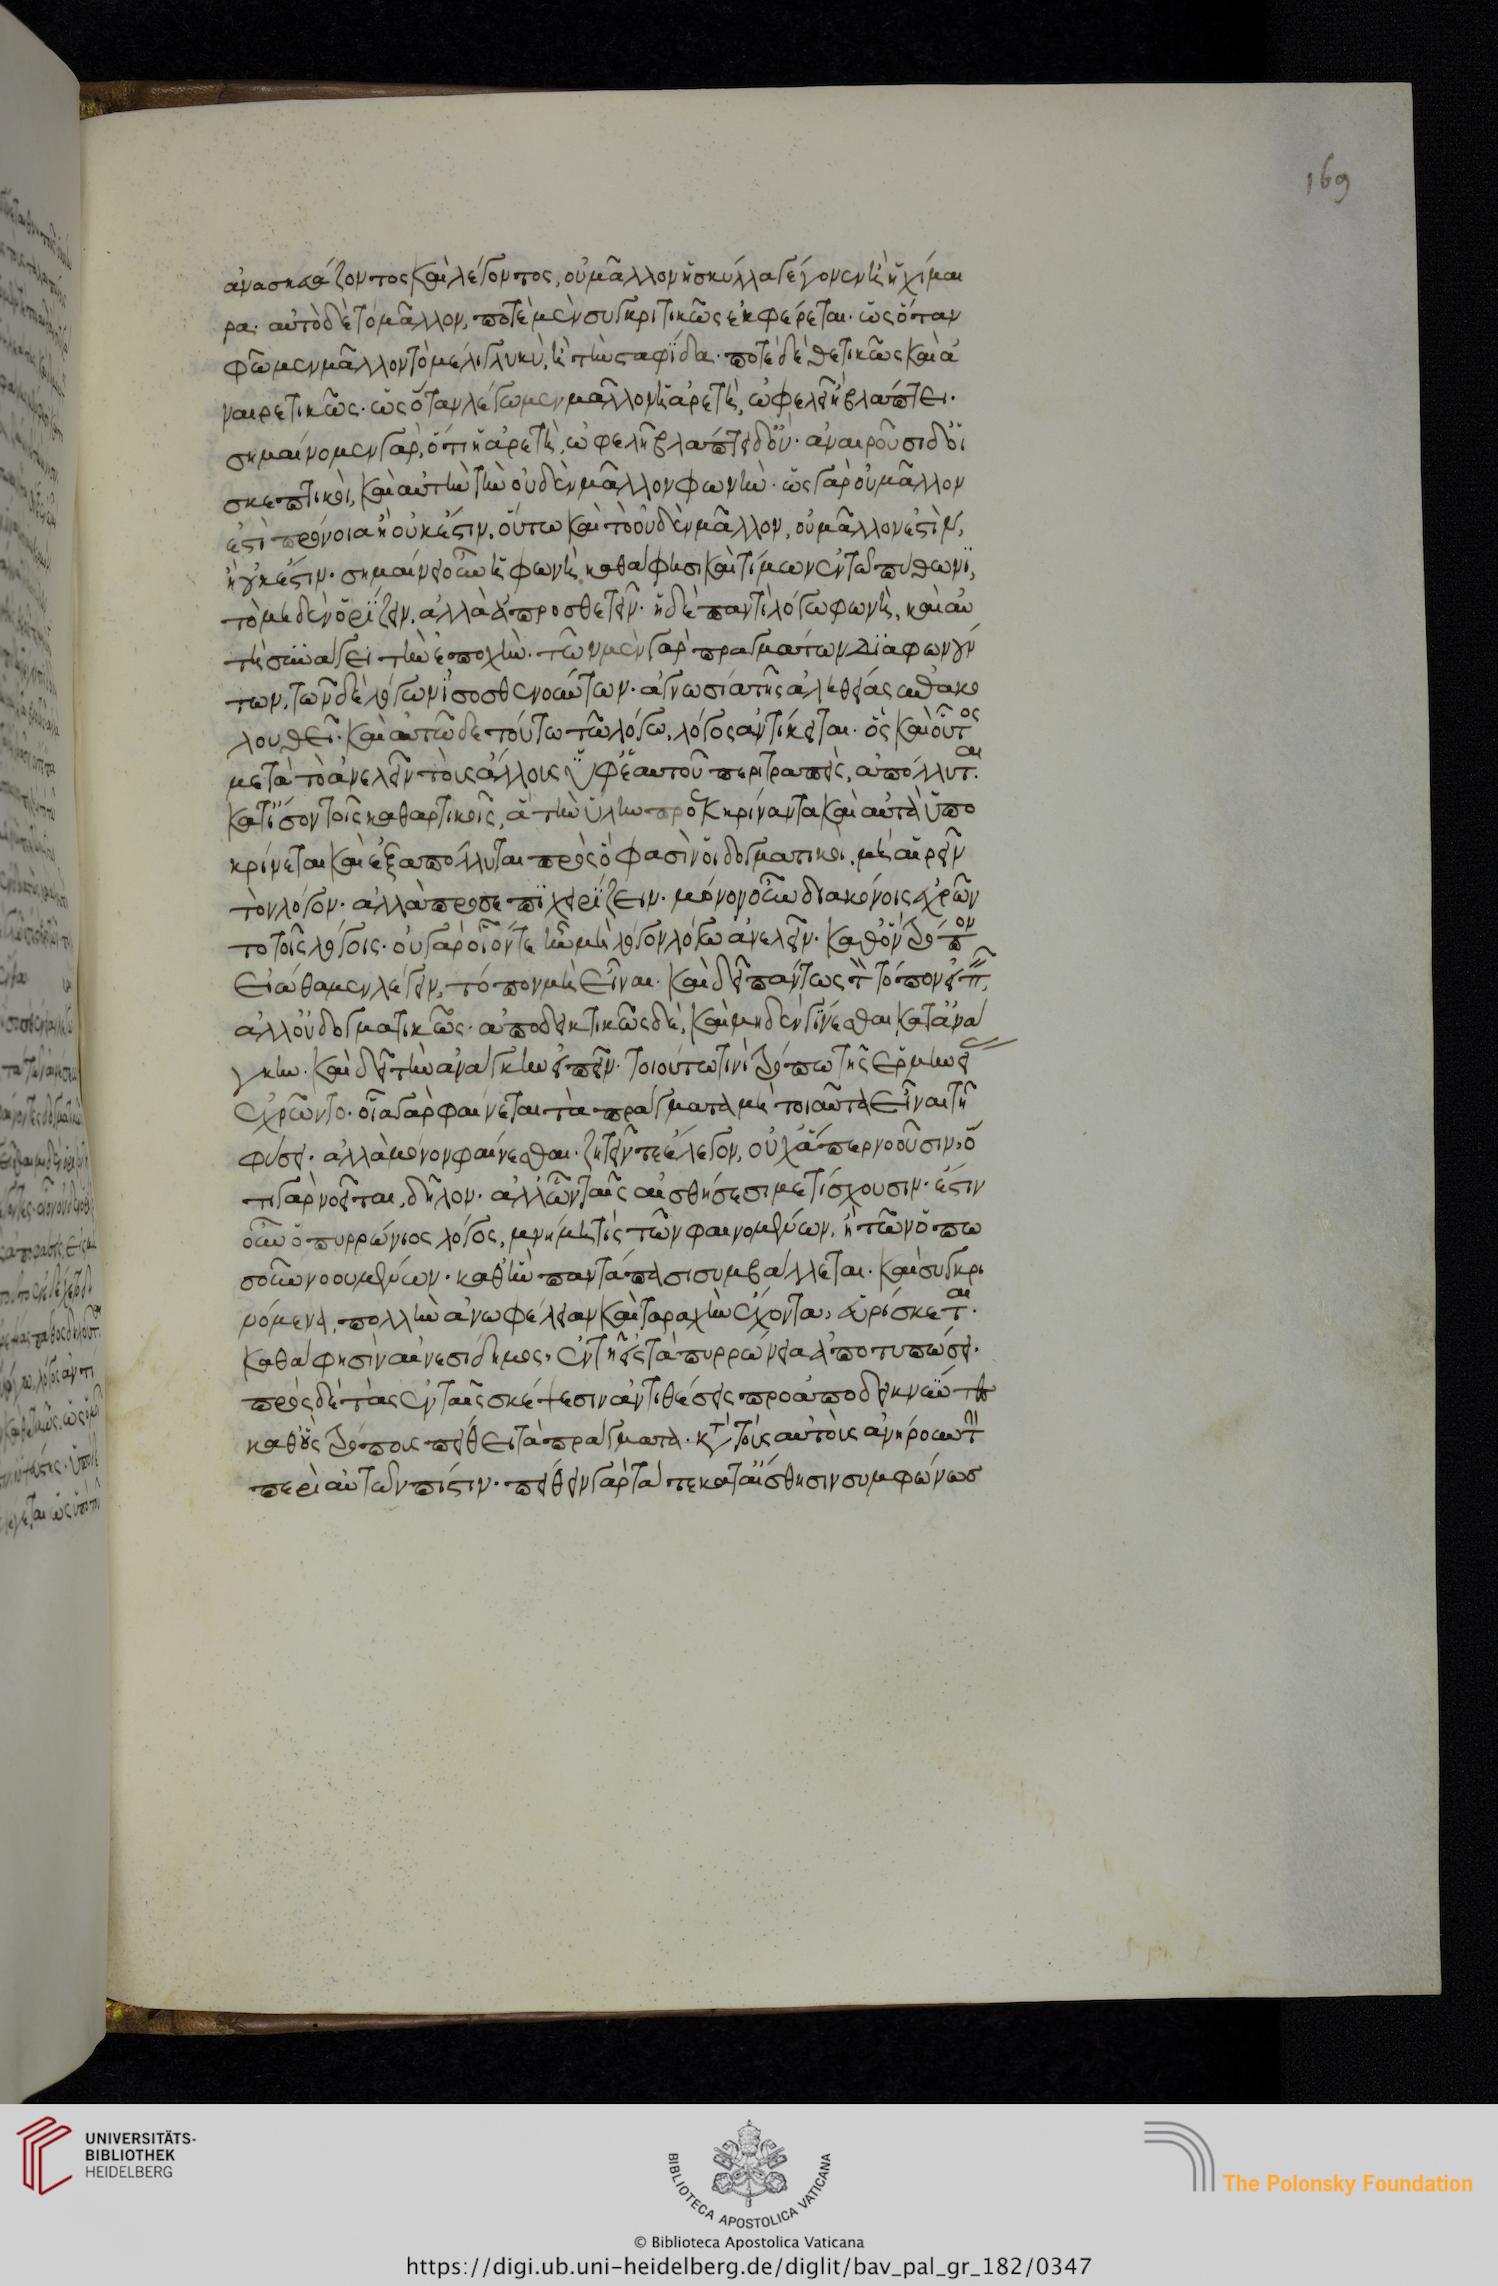 169
ἀνασκευάζοντος καὶ λέγοντος, οὐ μᾶλλον ἡ σκύλλα γέγονεν ἢ ἡ χίμαι
ρα. αὐτὸ δὲ τὸ μᾶλλον, ποτὲ μὲν συγκριτικῶς ἐκφέρεται. ὡς ὅταν
φῶμεν μᾶλλον τὸ μέλι γλυκὺ, ἢ τὴν σταφίδα. ποτὲ δὲ θετικῶς καὶ ἀ
ναιρετικῶς. ὡς ὅταν λέγωμεν μᾶλλον ἡ ἀρετὴ, ὠφελεῖ ἢ βλάπτει.
σημαίνομεν γὰρ, ὅτι ἡ ἀρετὴ, ὠφελεῖ βλάπτει δ οὔ. ἀναιροῦσι δ οἱ
σκεπτικοὶ, καὶ αὐτὴν τὴν οὐδὲν μᾶλλον φωνὴν. ὡς γὰρ οὐ μᾶλλον
ἐστὶ πρόνοια ἢ οὐκ ἔστιν. οὕτω καὶ τὸ οὐδὲν μᾶλλον, οὐ μᾶλλον ἐστὶν,
ἢ οὐκ ἔστιν. σημαίνει οὖν ἡ φωνὴ, καθά φησι καὶ τίμων ἐν τῶ πυθωνι,
τὸ μηδὲν ὁρίζειν, ἀλλὰ ἀπροσθετεῖν. ἡ δὲ παντὶ λόγω φωνὴ, καὶ αὐ
τὴ συνάγει τὴν ἐποχὴν. τῶν μὲν γὰρ πραγμάτων διαφωνούν
των, τῶν δὲ λόγων ἰσοσθενούντων. ἀγνωσία τῆς ἀληθείας ἐπακο
λουθεῖ. καὶ αὐτῶ δε τούτω τῶ λόγω, λόγος ἀντίκειται. ὃς καὶ οὗτος
μετὰ τὸ ἀνελεῖν τοὺς ἄλλους ὑφ ἑαυτοῦ περιτραπεὶς, ἀπόλλυται.
κατ ἴσον τοῖς καθαρτικοῖς, ἃ τὴν ὕλην προκκρίναντα καὶ αὐτὰ ὑπο
κρίνεται καὶ ἐξαπόλλυται πρὸς ὅ φασὶν οἱ δογματικοὶ, μὴ αἴρειν
τὸν λόγον. ἀλλὰ προσεπιχειρίζειν. μόνον οὖν διακόνοις ἐχρῶν
το τοῖς λόγοις. οὐ γὰρ οἷόν τε ἦν μὴ λόγον λόγω ἀνελεῖν. καθ ὃν τρόπον
εἰώθαμεν λέγειν, τόπον μὴ εἶναι. καὶ δεῖ πάντως τὸν τόπον εἰπεῖν,
ἀλλ οὐ δογματικῶς. ἀποδεικτικῶς δὲ, καὶ μηδὲν γίνεσθαι κατ ἀνά
γκην. καὶ δεῖ τὴν ἀνάγκην εἰπεῖν. τοιούτω τινὶ τρόπω τῆς ἑρμηνεί
ἐχρῶντο. οἷα γὰρ φαίνεται τὰ πράγματα μὴ τοιαῦτα εἶναι τῆ
φύσει. ἀλλὰ μόνον φαίνεσθαι. ζητεῖν τε ἔλεγον, οὐχ ἅπερ νοοῦσιν, ὅ
τι γὰρ νοεῖται, δῆλον. ἀλλ ὧν ταῖς αἰσθήσεσι μετίσχουσιν. ἔστιν
οὖν ὁ πυρρώνιος λόγος, μνήμη τὶς τῶν φαινομένων, ἢ τῶν ὅπω
σοῦν νοουμένων. καθ ἣν πάντα πᾶσι συμβάλλεται. καὶ συγκρι
νόμενα, πολλὴν ἀνωφέλειαν καὶ ταραχὴν ἔχοντα, εὑρίσκεται.
καθά φησὶν αἰνεσίδημος, ἐν τῆ εἰς τὰ πυρρώνεια ὑποτυπώσει.
πρὸς δὲ τὰς ἐν ταῖς σκέψεσιν ἀντιθέσεις προαποδεικνύντες
καθ οὓς τρόπους πείθει τὰ πράγματα. κατὰ τοὺς αὐτοὺς ἀνήρουν τὴν
περὶ αὐτῶν πίστιν. πείθειν γὰρ τά τε κατ αἴσθησιν συμφώνωσ
UNIVERSITÄTS-
BIBLIOTHEK
HEIDELBERG
BIBLIOTECA APOSTOLICA VATICANA
The Polonsky Foundation
© Biblioteca Apostolica Vaticana
https://digi.ub.uni-heidelberg.de/diglit/bav_pal_gr_182/0347